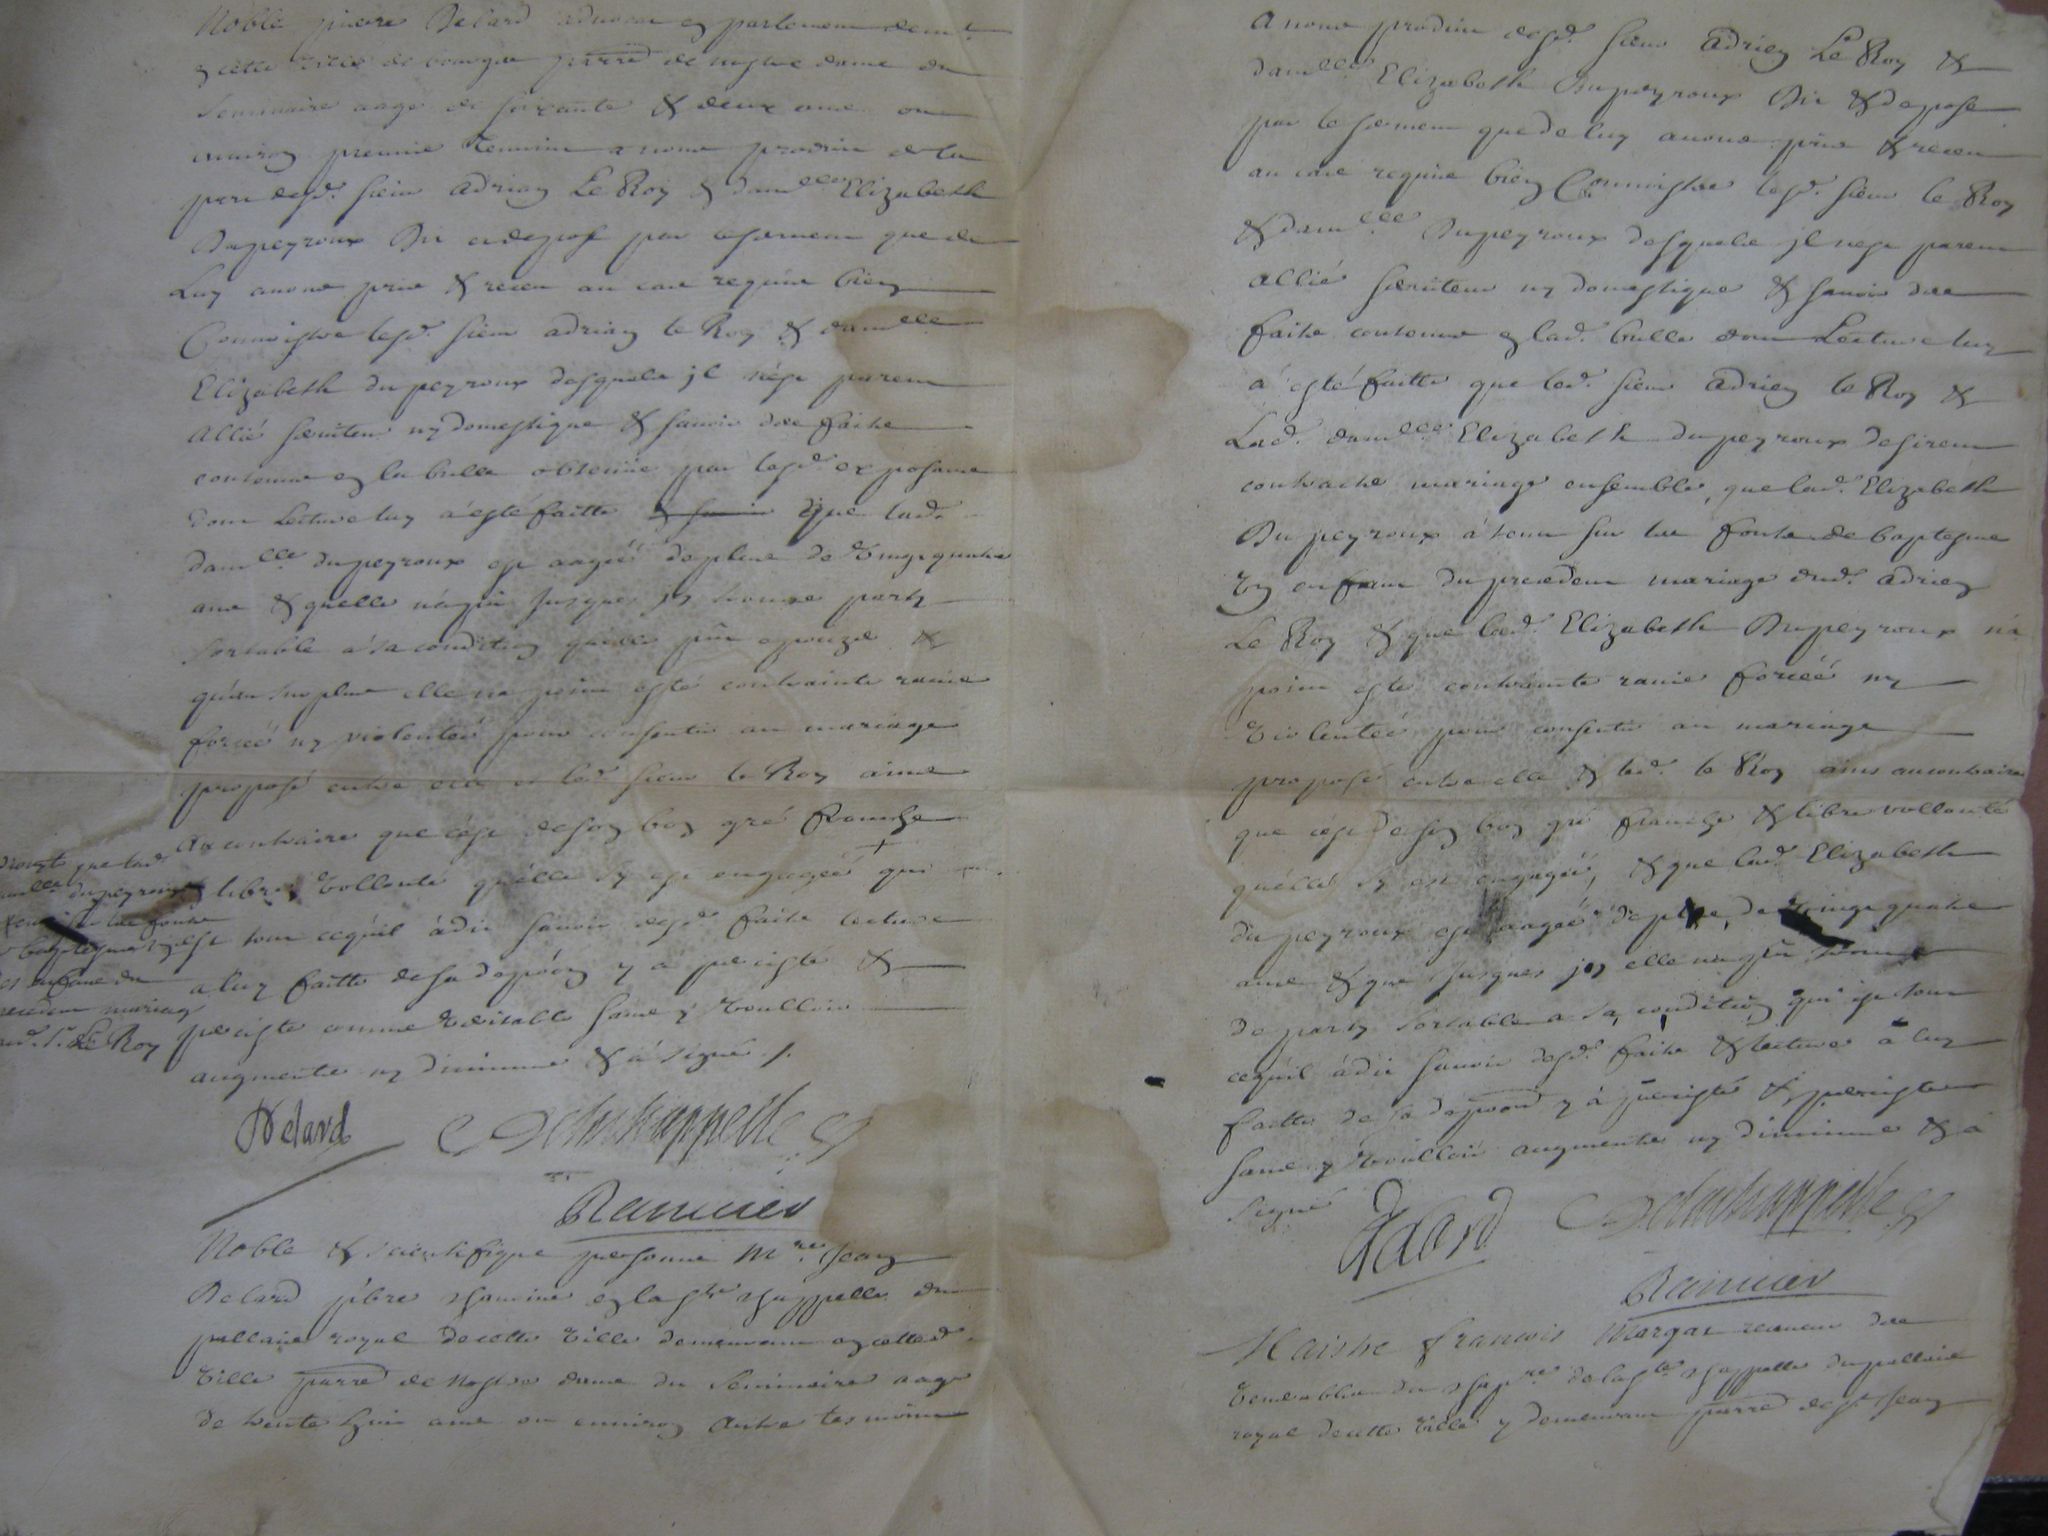 Noble pierre Delard advocat en parlement demt
en cette ville de bourges parr de nostre dame du
seminaire aagé de soixante & deux ans ou
environ premier temoin a nous produit de la
part desd. sieur Adrien Le Roy & damlle Elizabeth
Dupeyroux Dit et depose par le serment que de
Luy avons pris & receu au cas requis bien
Connoistre lesd. sieur adrien le Roy & damlle
Elizabeth dupeyroux desquels jl nést parent
Allié seruiteur ny domestique & sauoir des faits
contenus en la bulle obtenüe par lesd. exposans
dont Lecture luy a ésté faitte que lad.
damlle dupeyroux est aagéé de plus de Vingt quatre
ans & quelle n'a pu jusques jcy trouuer party
sortable a sa condition quelle pût epouzer &
qu'au surplus elle na point esté contrainte rauie
forcéé ny violentéé pour consentir au mariage
proposé entre elle et led. sieur le Roy ains
Au contraire que c'est de son bon gré franche
& libre Vollonté qu'elle sy est engagéé + qui
est tout cequil à dit sauoir desd. faits lecture
a luy faitte de sa depoon y a percisté &
perciste comme Veritable sans y Voulloir
augmenter ny diminuer & à signé ./.
que lad.
damlle dupeyroux
tenu sur les fonts
de baptesme
enfans du
precedent mariage
dud. sr. Le Roy
Delard Delachappelle
Ranvier
Noble & scientifique personne Mre. Jean
Delard p̃bre chanoine en la ste chappelle du
pallais royal de cette Ville demeurant en cetted.
Ville parr de Nostre dame du Seminaire aagé
de trente huit ans ou environ Autre tesmoin
A nous produit desd. sieur Adrien Le Roy &
damlle Elizabeth Dupeyroux Dit & depose
par le serment que de luy auons pris & receu
au cas requis bien Connoistre lesd. sieur le Roy
& damlle Dupeyroux desquels jl nest parent
allié seruiteur ny domestique & sauoir des
faits contenus en lad. bulle dont Lecture luy
a esté faitte que led. sieur Adrien le Roy &
Lad. damlle Elizabeth dupeyroux desirent
contracter mariage ensemble, que lad. Elizabeth
Dupeyroux à tenu sur les fonts de baptesme
Vn enfant du precedent mariage dud. Adrien
Le Roy & que lad. Elizabeth Dupeyroux n'a
point esté contrainte rauie forcéé ny
Violentéé pour consentir au mariage
proposé entre elle & led. le Roy ains au contraire
que cést de son bon gré franche & libre vollonté
quélle sy est engagéé, & que lad. Elizabeth
du peyroux est aagéé de plus de Vingt quatre
ans & que jusques jcy elle na pû trouuer
de party sortable a sa condition qui est tout
cequil à dit sauoir desd. faits & lecture a luy
faitte de sa depoon y à percisté & perciste
sans y Voulloir augmenter ny diminuer & à
signé Delard Delachappelle
Ranvier
Maistre francois Margat receueur des
de la ste chappelle du pallais
royal de cette Ville y demeurant parr de st Jean